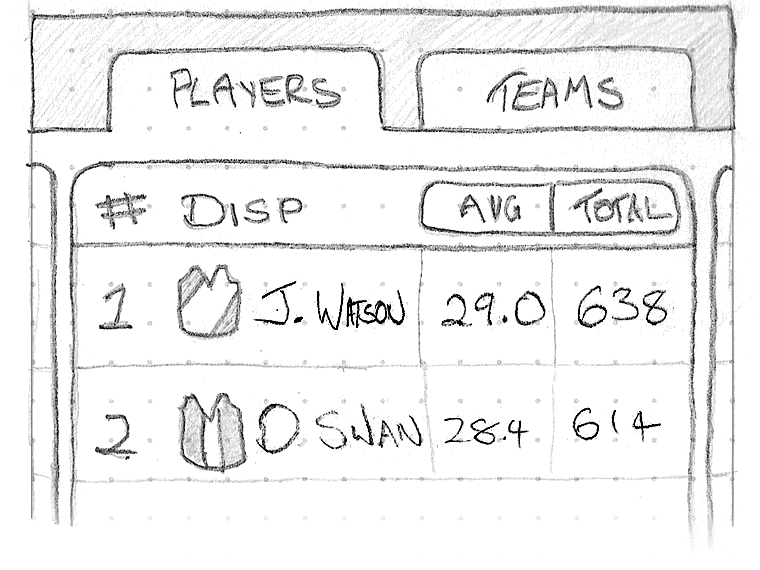 PLAYERS TEAMS
# DISP AVG TOTAL
1 J. WATSON 29.0 638
2 D SWAN 28.4 614